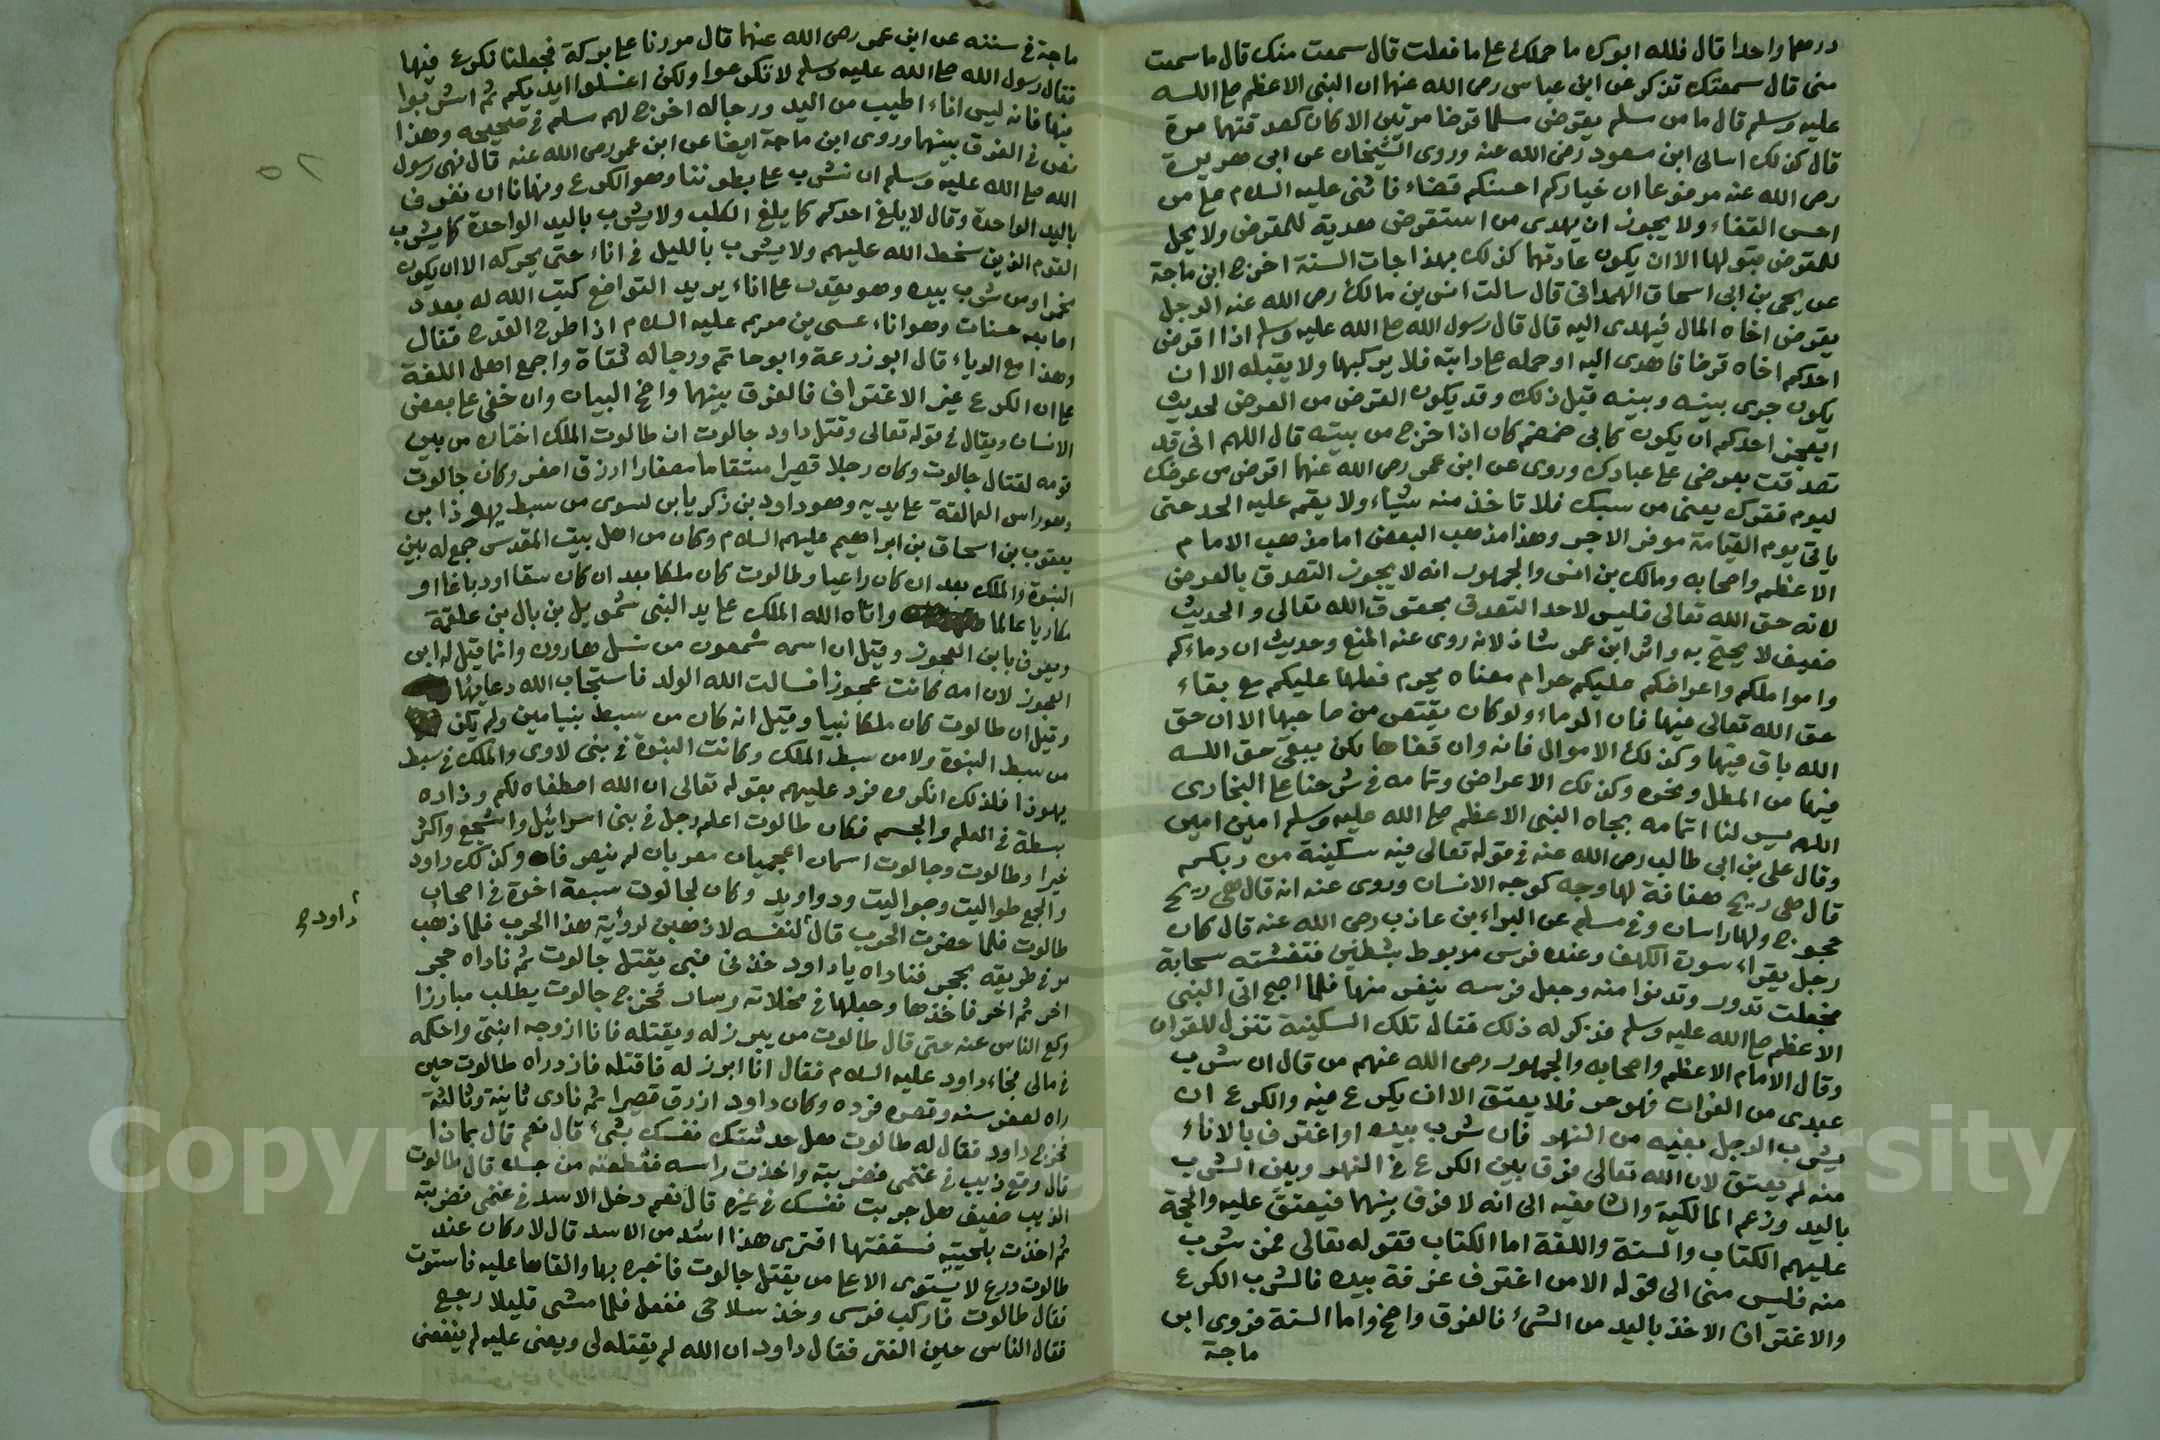 درهما واحدا قال فلله ابوك ما حملك على ما فعلت قال سمعت منك قال ما سمعت
منى قال سمعتك تذكر عن ابن عباس رضى الله عنهما ان النبى الاعظم صلى الله
عليه وسلم قال ما من مسلم يقرض مسلما قرضا مرتين الا كان كصدقتها مرة
قال كذلك اسالى ابن مسعود رضى الله عنه وروى الشيخان عن ابى هريرة
رضى الله عنه مرفوعا ان خياركم احسنكم قضاء فاثنى عليه السلام على من
احسن القضاء ولا يجوز ان يهدى من استقرض هدية للمقرض ولا يحل
للمقرض قبولها الا ان يكون عادتهما كذلك بهذا جات السنة اخرج ابن ماجة
عن يحيى بن ابى اسحاق الهمدانى قال سالت انس بن مالك رضى الله عنه الرجل
يقرض اخاه المال فيهدى اليه قال قال رسول الله صلى الله عليه وسلم اذا اقرض
احدكم اخاه قرضا فاهدى اليه او حمله على دابته فلا يركبها ولا يقبله الا ان
يكون جرى بينه وبينه قبل ذلك وقد يكون القرض من العرض لحديث
ايعجز احدكم ان يكون كابى ضمضم كان اذا خرج من بيته قال اللهم انى قد
تصدقت بعرضى على عبادك وروى عن ابن عمر رضى الله عنهما اقرض من عرضك
ليوم فقرك يعنى من سبك فلا تاخذ منه شياء ولا يقم عليه الحد حتى
ياتى يوم القيامة موفر الاجر وهذا مذهب البعض اما مذهب الامام
الاعظم واصحابه ومالك بن انس والجمهور انه لا يجوز التصدق بالعرض
لانه حق الله تعالى فليس لاحد التصدق بحقوق الله تعالى والحديث
ضعيف لا يحتج به واثر ابن عمر شاذ لانه روى عنه المنع وحديث ان دماءكم
واموالكم واعراضكم عليكم حرام معناه يحرم فعلها عليكم مع بقاء
حق الله تعالى فيها فان الدماء ولو كان يقتص من صاحبها الا ان حق
الله باق فيها وكذلك الاموال فانه وان قضاها لكن يبقى حق الله
فيها من المطل ونحوه وكذلك الاعراض وتمامه فى شرحنا على البخارى
اللهم يسر لنا اتمامه بجاه النبى الاعظم صلى الله عليه وسلم امين امين
وقال على بن ابى طالب رضى الله عنه فى قوله تعالى فيه سكينة من ربكم
قال هى ريح هفافة لها وجه كوجه الانسان وروى عنه انه قال هى ريح
خجوج ولها راسان وفى مسلم عن البراء بن عازب رضى الله عنه قال كان
رجل يقراء سورة الكهف وعنده فرس مربوط بشطنين فتغشته سحابة
فجعلت تدور وتدنوا منه وجعل فرسه ينفر منها فلما اصبح اتى النبى
الاعظم صلى الله عليه وسلم فذكر له ذلك فقال تلك السكينة تنزل للقران
وقال الامام الاعظم واصحابه والجمهور رضى الله عنهم من قال ان شرب
عبدى من الفرات فهو حر فلا يعتق الا ان يكرع فيه والكرع ان
يشرب الرجل بفيه من النهر فان شرب بيده او اغترف بالاناء
منه لم يعتق لان الله تعالى فرق بين الكرع فى النهر وبين الشرب
باليد وزعم المالكية والشافعيه الى انه لا فرق بينهما فيعتق عليه والحجة
عليهم الكتاب والسنة واللغة اما الكتاب فقوله تعالى فمن شرب
منه فليس منى الى قوله الا من اغترف غرفة بيده فالشرب الكرع
والاغتراف الاخذ باليد من الشئ فالفرق واضح واما السنة فروى ابن
ماجة
ماجة فى سننه عن ابن عمر رضى الله عنهما قال مررنا على بركة فجعلنا نكرع فيها
فقال رسول الله صلى الله عليه وسلم لا تكرعوا ولكن اغسلوا ايديكم ثم اشربوا
فيها فانه ليس اناء اطيب من اليد ورجاله اخرج لهم مسلم فى صحيحه وهذا
نص فى الفرق بينهما وروى ابن ماجة ايضا عن ابن عمر رضى الله عنه قال نهى رسول
الله صلى الله عليه وسلم ان نشرب على بطوننا وهو الكرع ونهانا ان نغرف
باليد الواحدة وقال لا يلغ احدكم كما يلغ الكلب ولا يشرب باليد الواحدة كما يشرب
القوم الذين سخط الله عليهم ولا يشرب بالليل فى اناء حتى يحركه الا ان يكون
مخمرا ومن شرب بيده وهو يقدر على اناء يريد التواضع كتب الله له بعدد
اصابعه حسنات وهو اناء عيسى بن مريم عليه السلام اذا طرح القدح فقال
وهذا مع الدنياء قال ابو زرعة وابو حاتم ورجاله ثقاة واجمع اهل اللغة
على ان الكرع غير الاغتراف فالفرق بينهما واضح البيان وان خفى على بعض
الانسان ويقال فى قوله تعالى وقتل داود جالوت ان طالوت الملك اختاره من بين
قومه لقتال جالوت وكان رجلا قصيرا مسقاما مصفارا ازرق اصفر وكان جالوت
وهو راس العمالقة على يديه وهو داود بن زكريا بن لسوى من سبط يهوذا بن
يعقوب بن اسحاق بن ابراهيم عليهم السلام وكان من اهل بيت المقدس جمع له بين
النبوة والملك بعد ان كان راعيا وطالوت كان ملكا بعد ان كان سقا او دباغا او
مكاريا عالما واتاه الله الملك على يد النبى شمويل بن بال بن علقمة
ويعرف بابن العجوز وقيل ان اسمه شمعون من نسل هارون وانما قيل له ابن
العجوز لان امه كانت عجوزا فسالت الله الولد فاستجاب الله دعايها
وقيل ان طالوت كان ملكا نبيا وقيل انه كان من سبط بنيامين ولم يكن
من سبط النبوة ولا من سبط الملك وكانت النبوة فى بنى لاوى والملك فى سبط
يهوذا فلذلك انكروه فرد عليهم بقوله تعالى ان الله اصطفاه لكم وزاده
بسطة فى العلم والجسم فكان طالوت اعلم رجل فى بنى اسرائيل واشجع واكثر
خيرا وطالوت وجالوت اسمان اعجميان معربان لم ينصرفا وكذلك داود
والجمع طواليت وجواليت ودواويد وكان لجالوت سبعة اخوة فى اصحاب
طالوت فلما حضرت الحرب قال لنفسه لاذهبن لرؤية هذا الحرب فلما ذهب
داود صح
مر فى طريقه بحجر فناداه يا داود خذنى فبى يقتل جالوت ثم ناداه حجر
اخر ثم اخر فاخذها وجعلها فى مخلاته وسار فخرج جالوت يطلب مبارزا
وكع الناس عنه حتى قال طالوت من يبرز له ويقتله فانا ازوجه ابنتى واحكمه
فى مالى فجاء داود عليه السلام فقال انا ابرز له فاقتله فازدراه طالوت حين
راه لصغر سنه وقصره فرده وكان داود ازرق قصيرا ثم نادى ثانية وثالثة
فخرج داود فقال له طالوت هل حدثتك نفسك بشئ قال نعم قال بماذا
قال وقع ذيب فى غنمى فضربته واخذت راسه فقطعته من جسده قال طالوت
الذيب ضعيف هل جربت نفسك فى غيره قال نعم دخل الاسد فى غنمى فضربته
ثم اخذت بلحيته فشققتها افترى هذا اشد من الاسد قال لا وكان عند
طالوت درع لا يستوى الا على من يقتل جالوت فاخبره بها والقاها عليه فاستوت
فقال طالوت فاركب فرسى وخذ سلاحى ففعل فلما مشى قليلا رجع
فقال الناس جبن الفتى فقال داود ان الله لم يقتله لى ويعنى عليه لم ينفعنى
Copyright © King Saud University